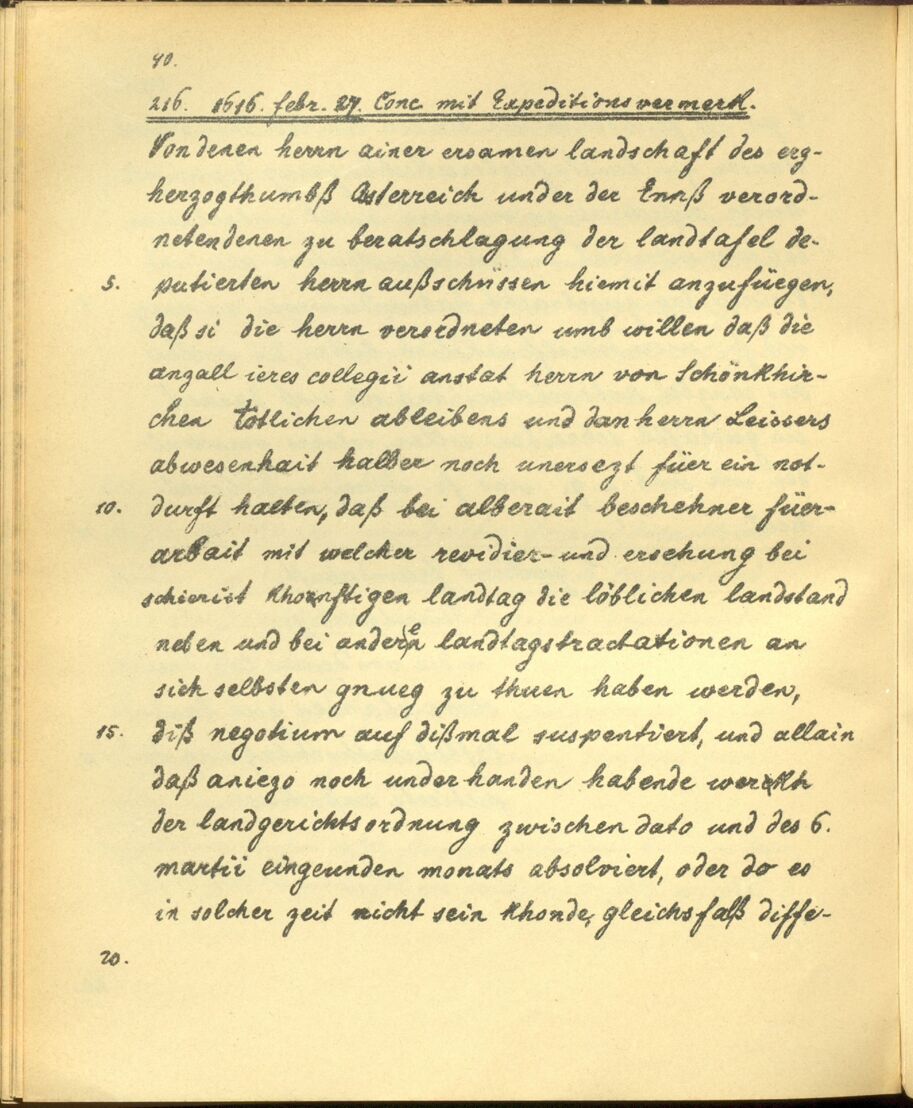 40.
216. 1616. febr. 27. Conc. mit Expeditionsvermerk.
Von denen herrn ainer ersamen landschaft des erz-
herzogthumbß Österreich under der Ennß verord-
neten denen zu beratschlagung der landtafel de-
5. putierten herrn außschüssen hiemit anzufüegen,
daß si die herrn verordneten umb willen daß die
anzall ieres collegii anstat herrn von Schönkhir-
chen tötlichen ableibens und dan herrn Leissers
abwesenhait halber noch unersezt füer ein not-
10. durft halten, daß bei alberait beschehner füer-
arbait mit welcher revidier- und ersehung bei
schierist khonftigen landtag die löblichen landstand
neben und bei andern landtagstractationen an
sich selbsten gnueg zu thuen haben werden,
15. diß negotium auf dißmal suspentiert, und allain
daß aniezo noch under handen habende werckh
der landgerichtsordnung zwischen dato und des 6.
martii eingeunden monats absolviert, oder do es
in solcher zeit nicht sein khonde, gleichsfalß diffe-
20.